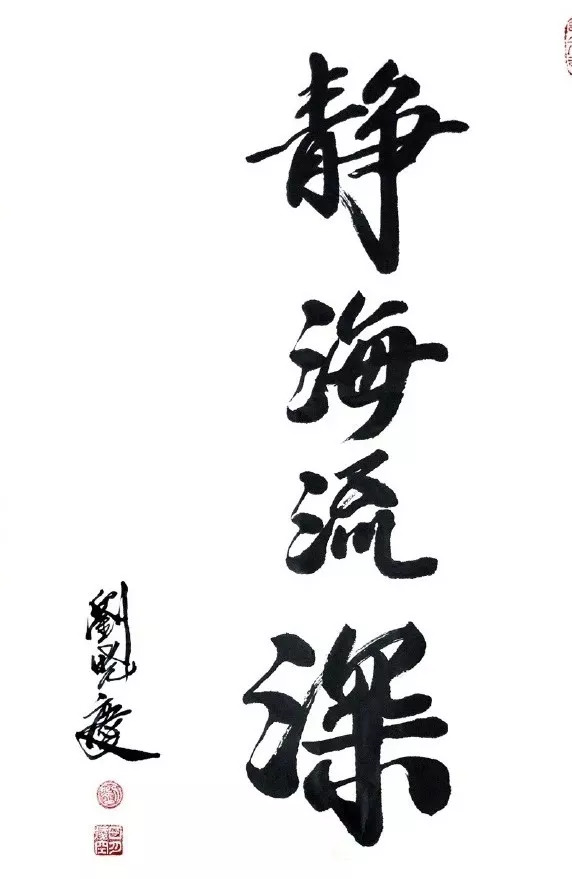 静海流深
劉曉慶